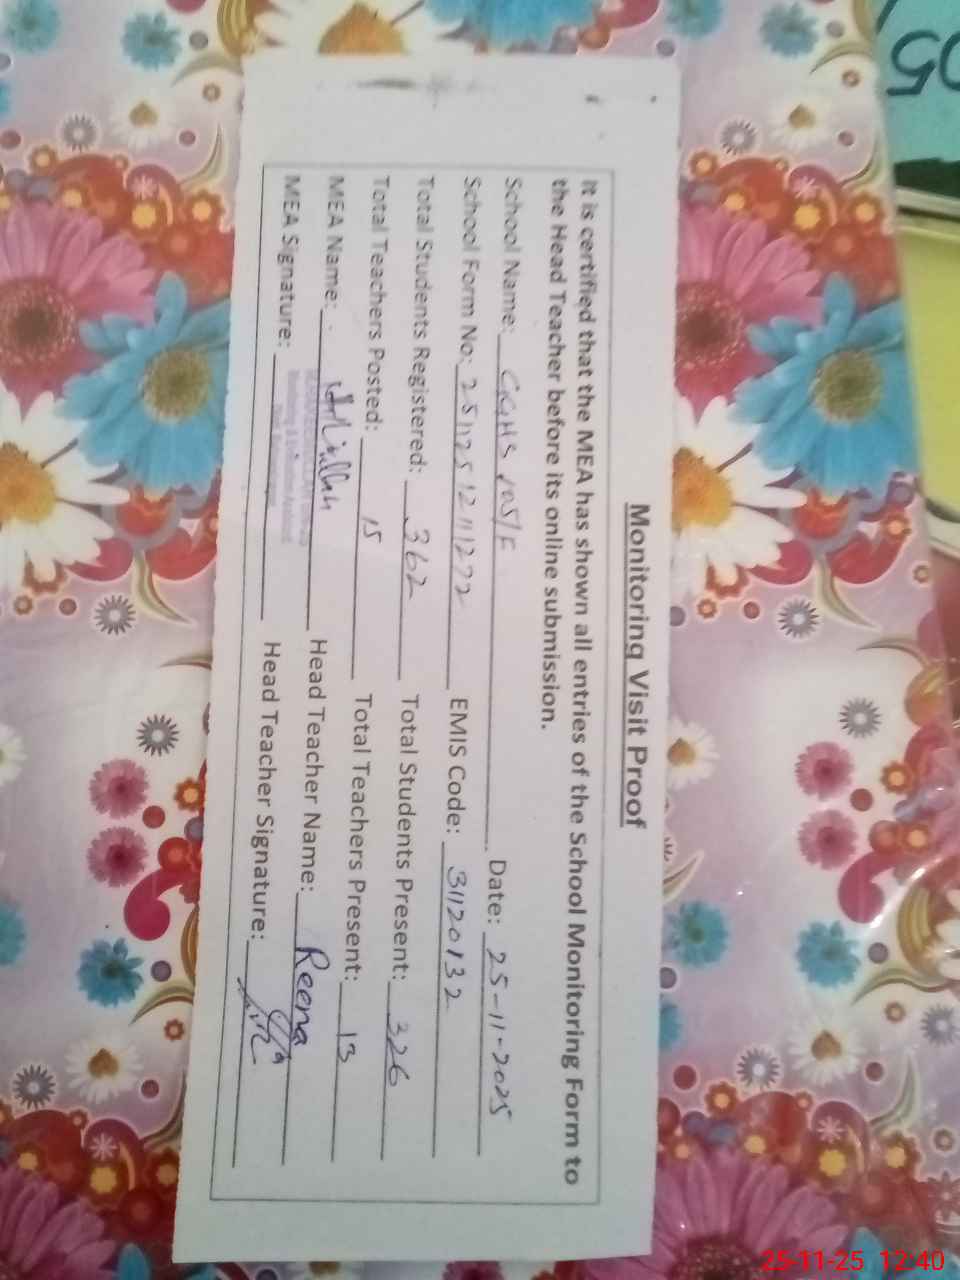 Monitoring Visit Proof
It is certified that the MEA has shown all entries of the School Monitoring Form to
the Head Teacher before its online submission.
School Name: GGHS 105/F Date: 25-11-2025
School Form No: 25112512111272 EMIS Code: 31120132
Total Students Registered: 362 Total Students Present: 326
Total Teachers Posted: 15 Total Teachers Present: 13
MEA Name: Head Teacher Name: Reena
MEA Signature: Head Teacher Signature:
05
25-11-25 12:40